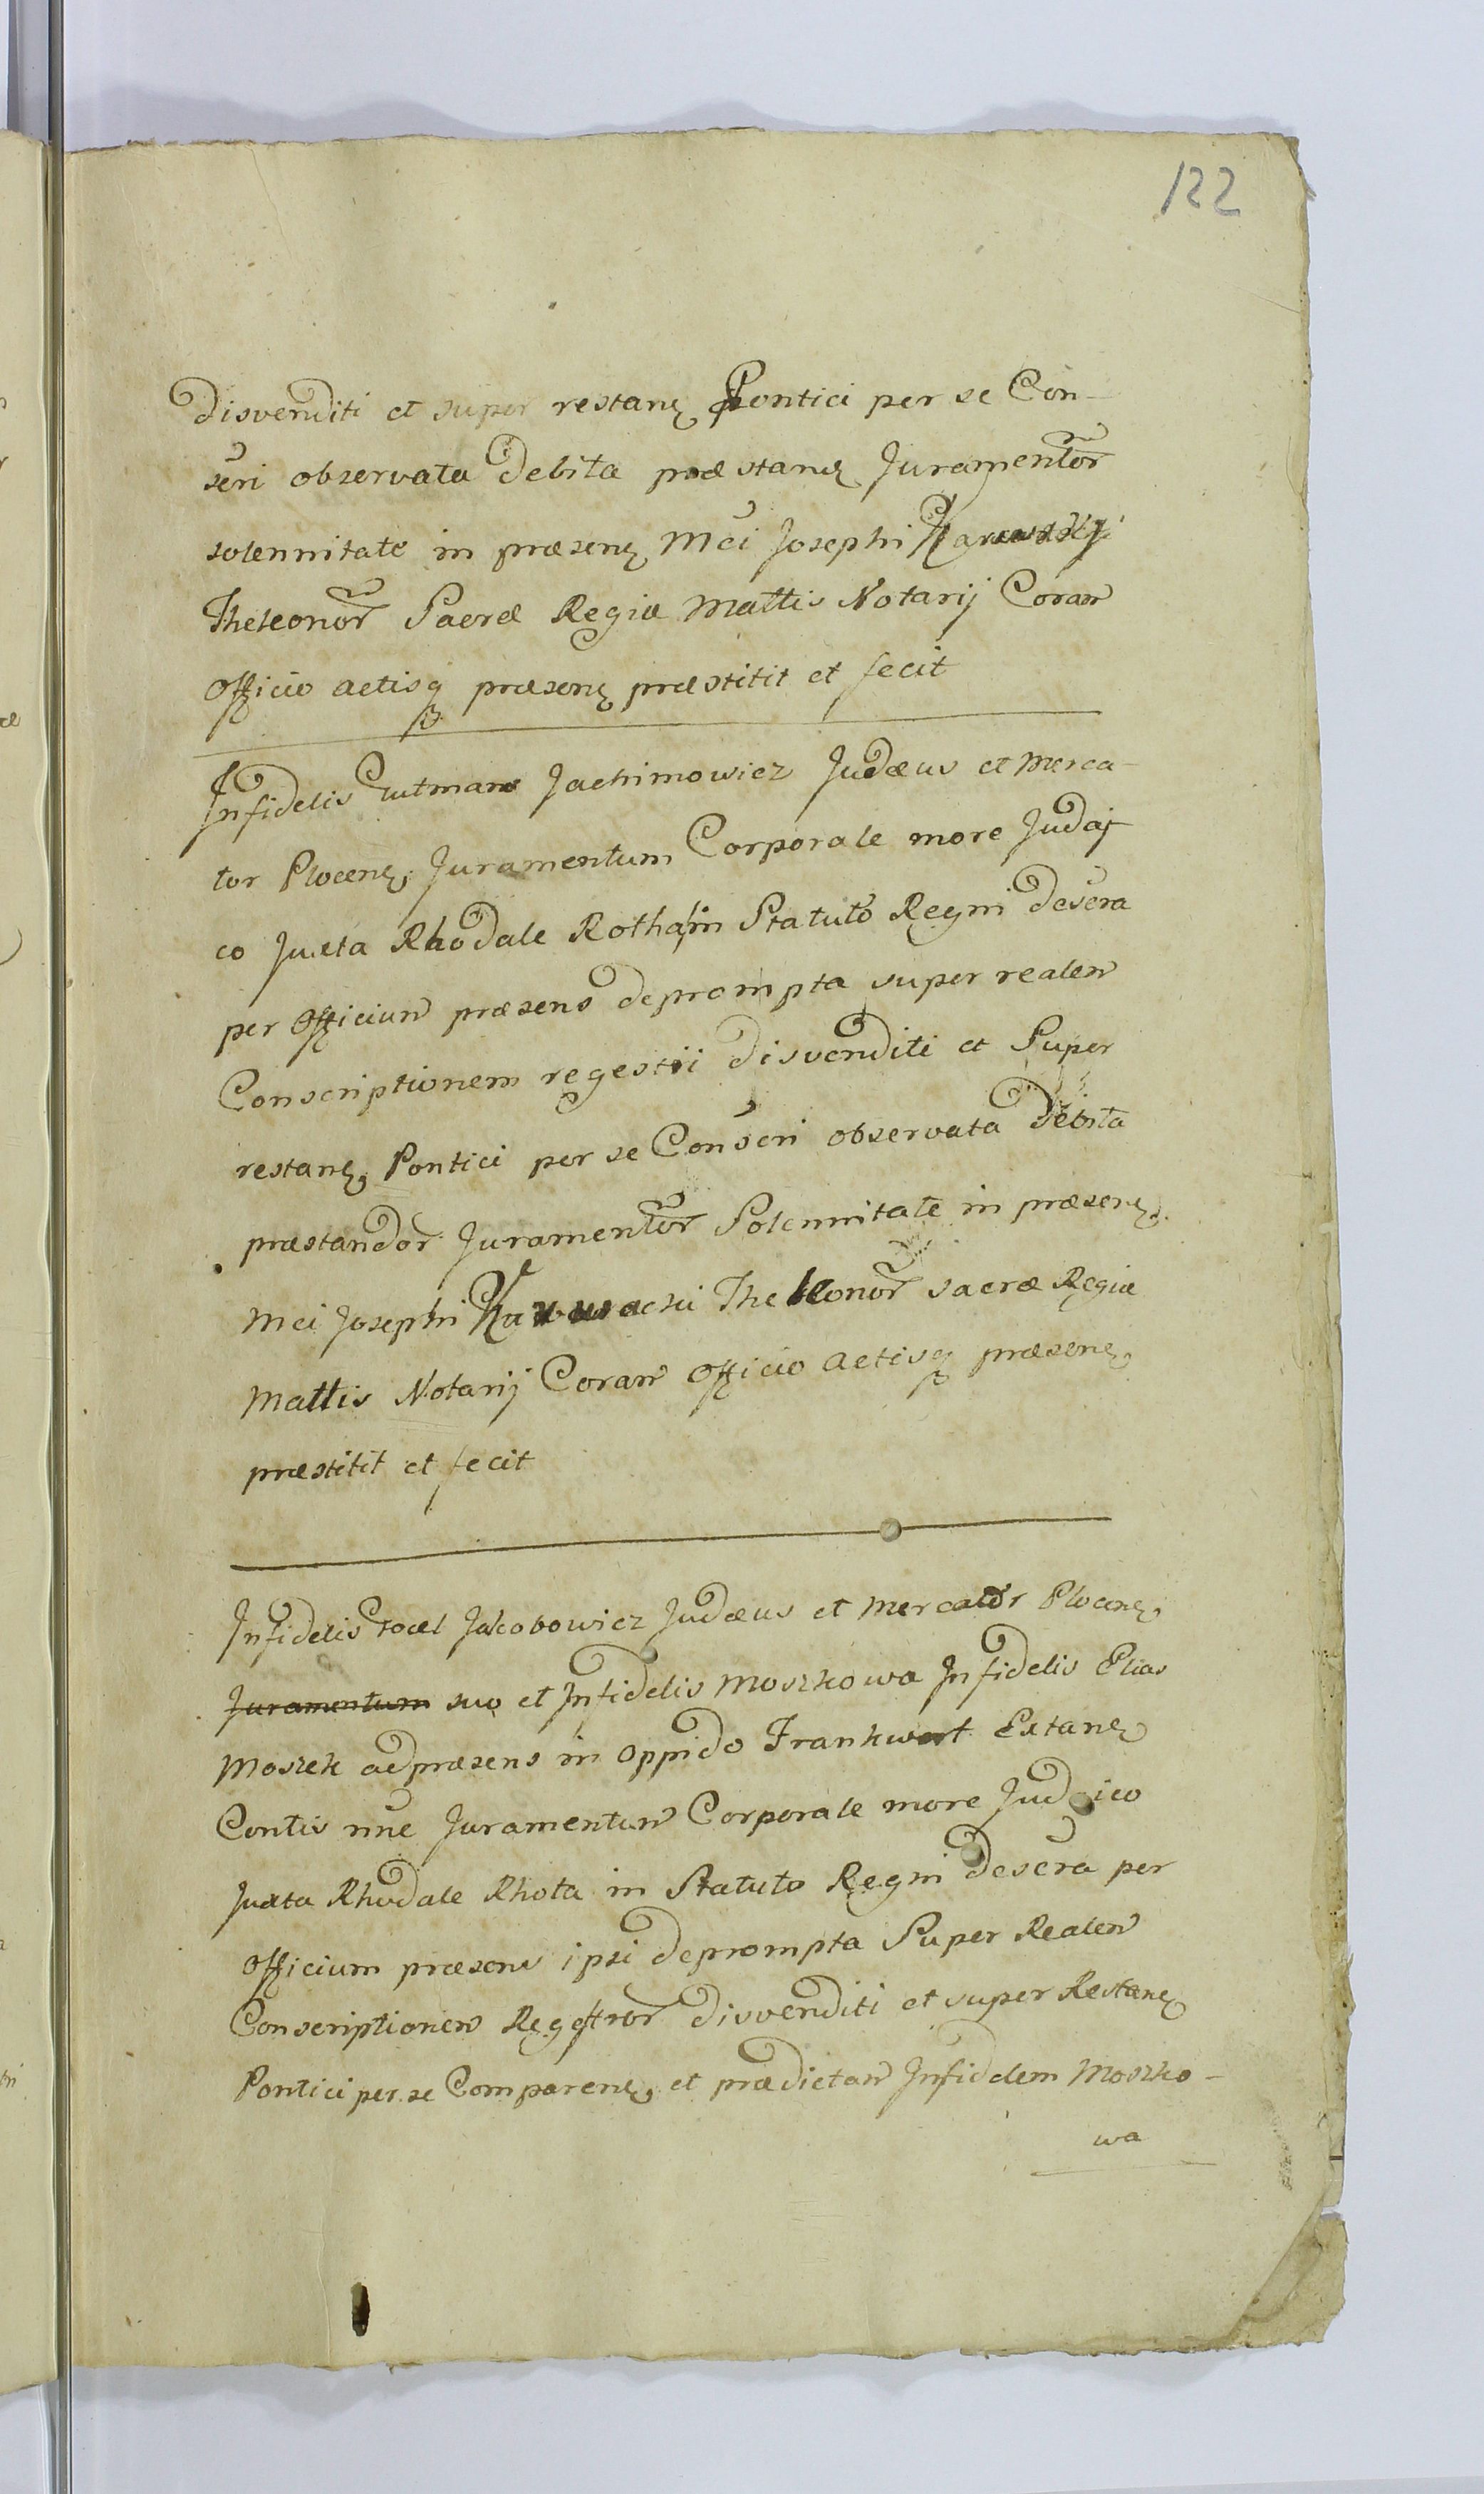 122
Disvenditi et super restanȩ Pontici per se Con-
scri observata Debita præstanȩ Juramentor̃
solennitate in præsenȩ Mci Josephi
Theleonor̃ Sacræ Regiæ Mattis Notarij Coram̃
Officio actisq præsenȩ præstitit et fecit
Infidelis Gutman Jachimowicz Judæus et Merca-
tor Plocenȩ, Juramentum Corporale more Judaj
co Juxta Rhodale Rotham in Statuto Regni descra
per Officium̃ præsens deprompta super realem̃
Conscriptionem regestri disvenditi et Super
restanȩ, Pontici per se Conscri observata Debita
præstandor̃ Juramentor̃ Solennitate in præsenȩ
Mci Josephi Theleonor̃ sacræ Regiæ
Mattis Notarij Coram̃ Officio actisq præsenȩ
præstitit et fecit
Infidelis Jakobowicz Judæus et Mercator Plocenȩ,
Juramentum suo et Infidelis Moszkowa Infidelis Elias
Moszek ad præsens in Oppido Frankwort Extanȩ
Contis nñe Juramentum̃ Corporale more Judaico
Juxta Rhodale Rhota in Statuto Regni descra per
Officium præsens ipsi deprompta Super Realem̃
Conscriptionem̃ Regestror̃ disvenditi et super Restanȩ
Pontici per se Comparenȩ, et prædictam̃ Infidelem Moszko-
wa